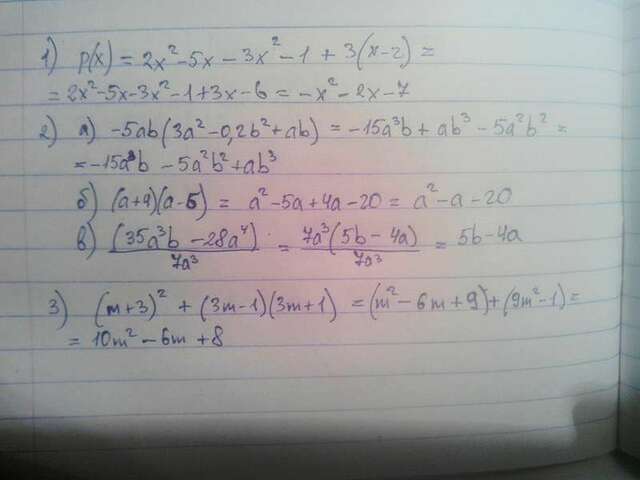 1) p(x) = 2x² - 5x - 3x² - 1 + 3(x-2) =
= 2x² - 5x - 3x² - 1 + 3x - 6 = -x² - 2x - 7
2) а) -5ab(3a² - 0,2b² + ab) = -15a³b + ab³ - 5a²b² =
= -15a³b - 5a²b² + ab³
б) (a+4)(a-5) = a² - 5a + 4a - 20 = a² - a - 20
в) (35a³b - 28a⁴)/7a³ = 7a³(5b - 4a)/7a³ = 5b - 4a
3) (m+3)² + (3m-1)(3m+1) = (m² - 6m + 9) + (9m² - 1) =
= 10m² - 6m + 8